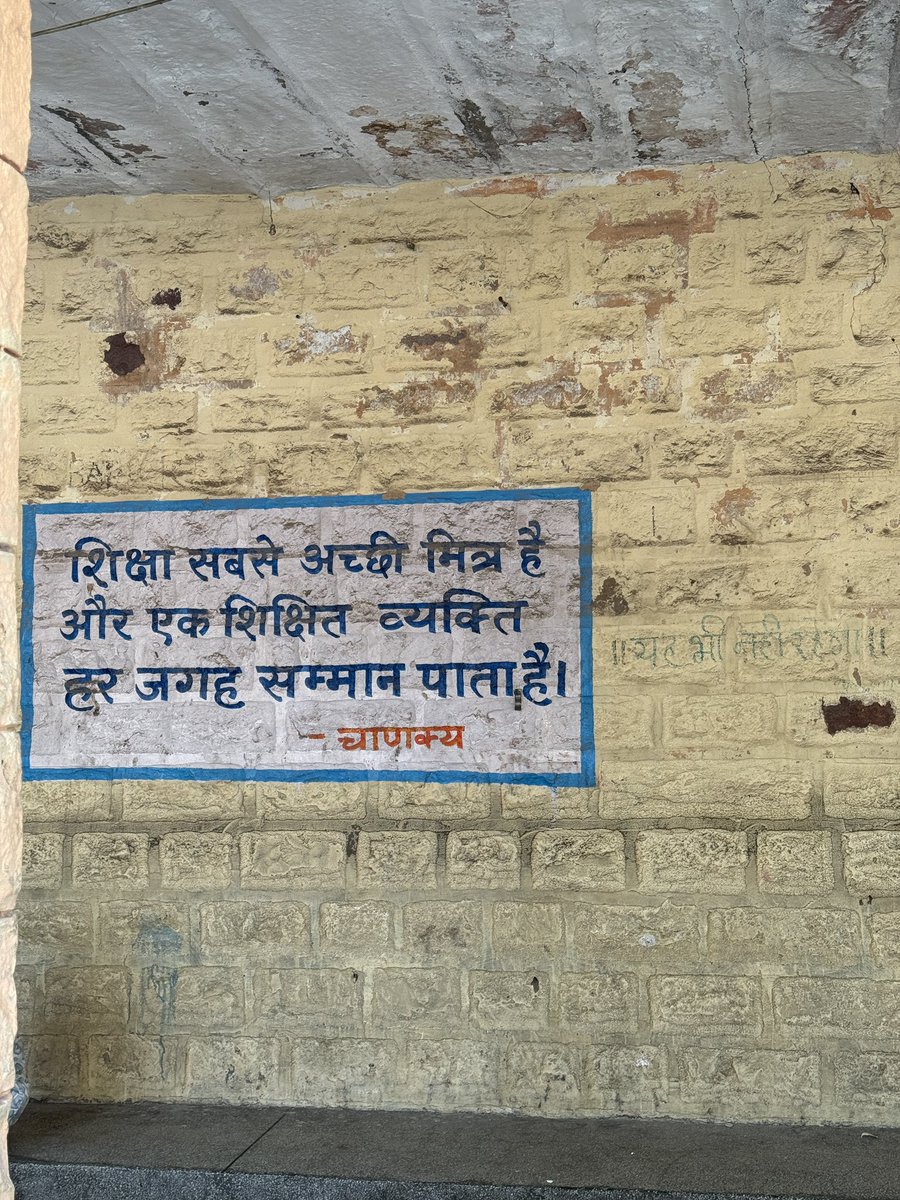 शिक्षा सबसे अच्छी मित्र है
और एक शिक्षित व्यक्ति
हर जगह सम्मान पाता है।
- चाणक्य
॥ यह भी नहीं रहेगा ॥